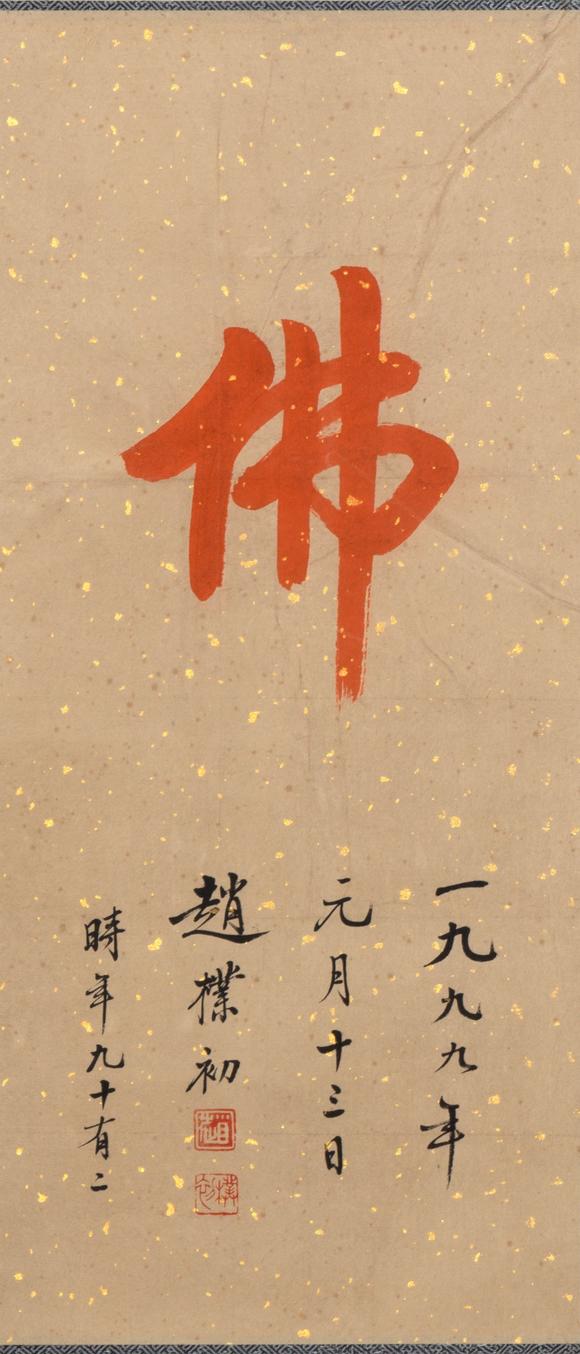 佛
一九九九年
元月十三日
趙樸初
時年九十有二
趙
樸初